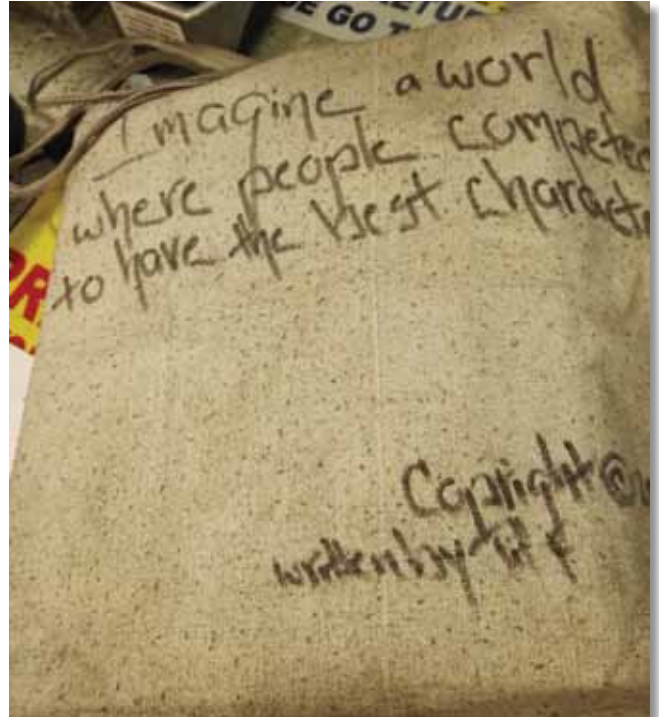 GO
Imagine a world
where people compete
to have the best charact
Copright ©
written by